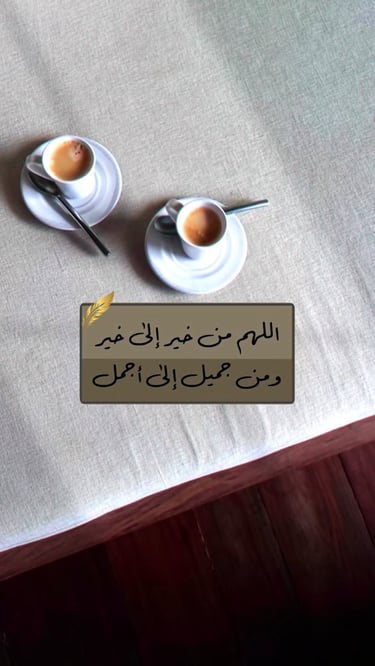 اللهم من خير إلى خير
ومن جميل إلى أجمل